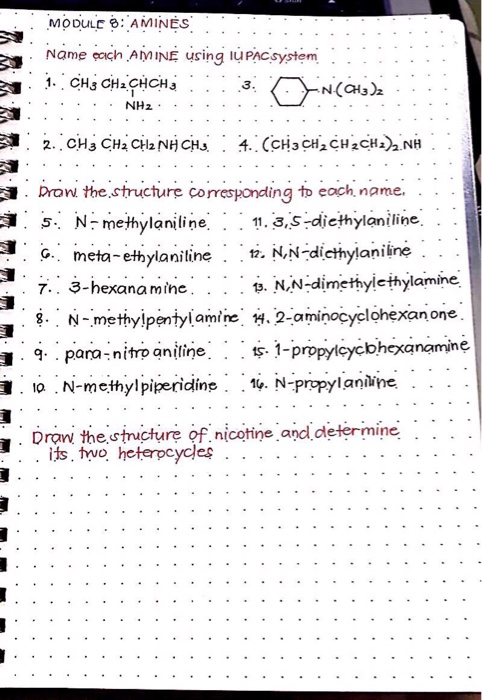 MODULE 8: AMINES
Name each AMINE using IUPAC system
1. CH3 CH2 CHCH3
NH2
3. N(CH3)2
2. CH3 CH2 CH2 NH CH3
4. (CH3 CH2 CH2 CH2)2 NH
Draw the structure corresponding to each name.
5. N-methylaniline
11. 3,5-diethylaniline
6. meta-ethylaniline
12. N,N-diethylaniline
7. 3-hexanamine
13. N,N-dimethylethylamine
8. N-methylpentylamine
14. 2-aminocyclohexanone
9. para-nitro aniline
15. 1-propylcyclohexanamine
10. N-methylpiperidine
16. N-propylaniline
Draw the structure of nicotine and determine
its two heterocycles